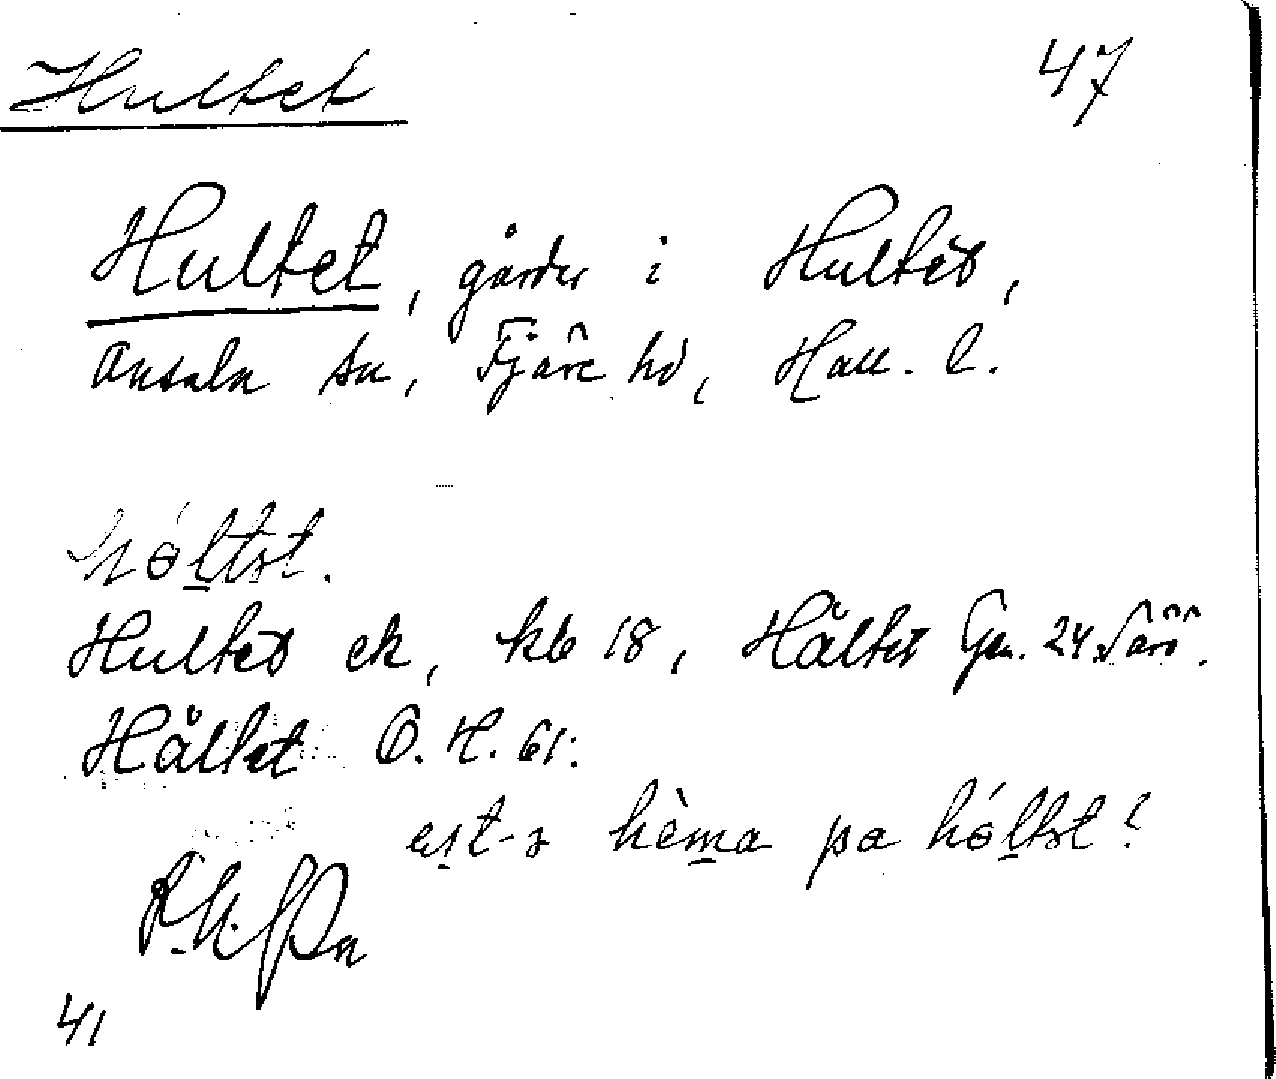 Hultet 47
Hultet, gårdar i Hultet,
Onsala sn, Fjäre hd, Hall. l.
hóltət.
Hultet ek, kb 18, Håltet Gen. 24 Särö.
Håltet O. H. 61:
hèma pa hóltət?
41